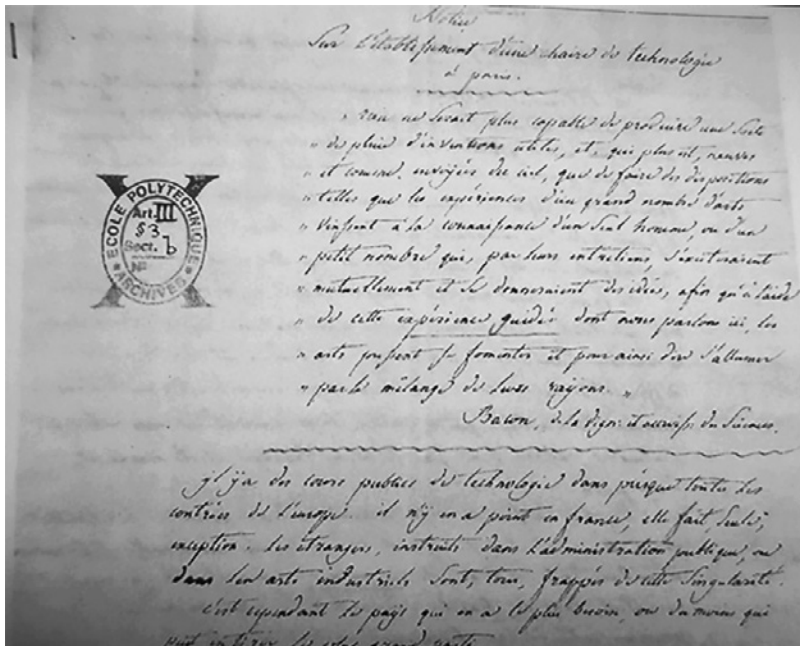 Notice
Sur l'établissement d'une chaire de technologie
à paris.
" rien ne serait plus capable de produire une sorte
" de pluie d'inventions utiles, et, qui plus est, neuves
" et comme envoyées du ciel, que de faire des dispositions
" telles que les expériences d'un grand nombre d'arts
" vinssent à la connaissance d'un seul homme, ou d'un
" petit nombre qui, par leurs entretiens, s'exciteraient
" mutuellement et se donneraient des idées, afin qu'à l'aide
" de cette expérience guidée dont nous parlons ici, les
" arts pussent se fomenter et pour ainsi dire s'allumer
" par le mélange de leurs rayons. "
Bacon, de la dign: et accroiss. du Sciences.
ECOLE POLYTECHNIQUE
Art. III
§3
Sect. b
N°
ARCHIVES
il y a des cours publics de technologie dans presque toutes les
contrées de l'europe. il n'y en a point en france, elle fait, seule,
exception. les étrangers, instruits dans l'administration publique, ou
dans les arts industriels sont, tous, frappés de cette singularité.
c'est cependant le pays qui en a le plus besoin, ou du moins qui
peut en tirer le plus grand parti.